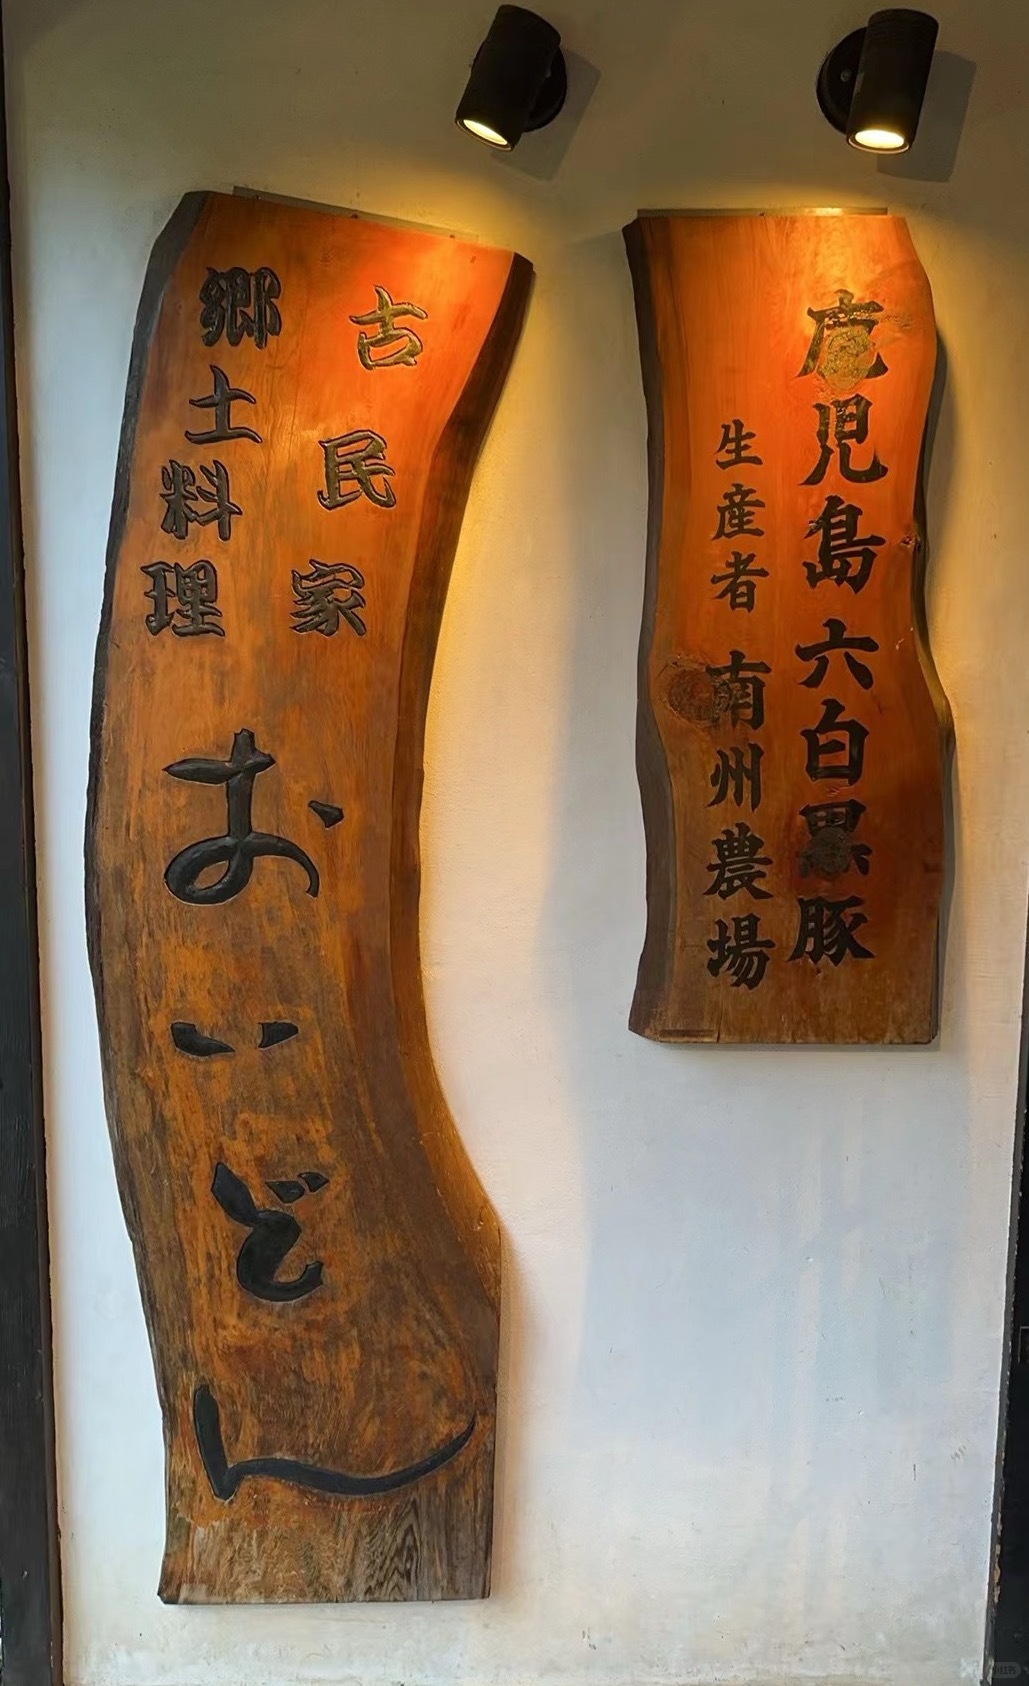 古民家
郷土料理
おいどん
鹿児島六白黒豚
生産者 南州農場
小红书